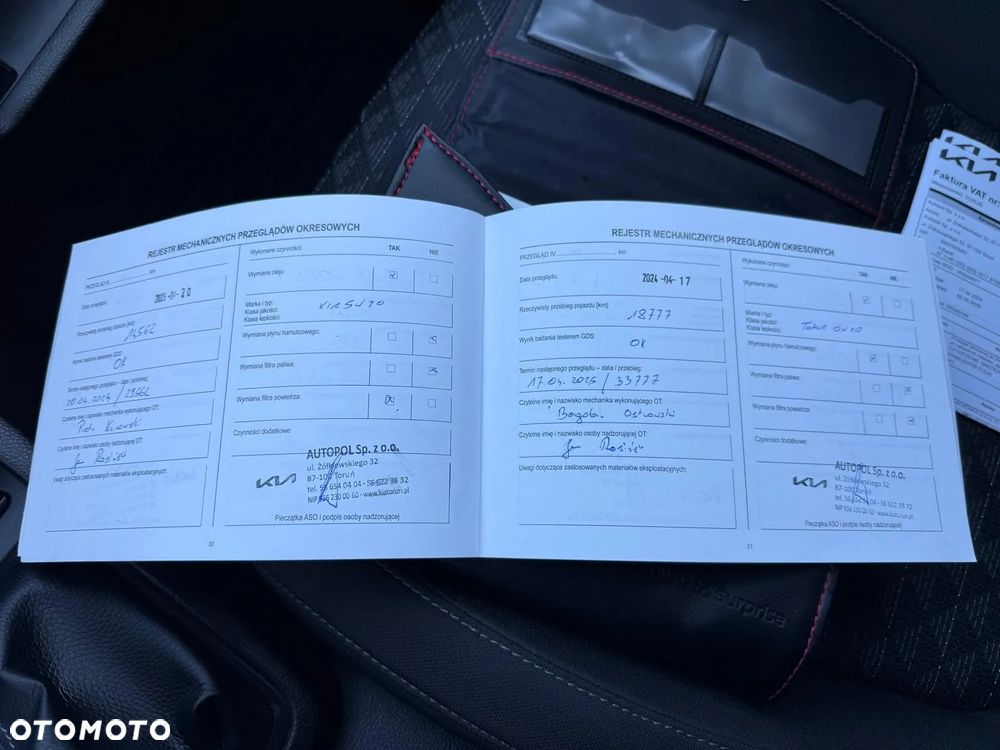 REJESTR MECHANICZNYCH PRZEGLĄDÓW OKRESOWYCH
PRZEGLĄD
km
Data przeglądu:
2023 -04- 20
Rzeczywisty przebieg pojazdu [km]:
14562
Wynik badania testerem GDS:
OK
Termin następnego przeglądu – data / przebieg:
20.04.2024 / 29562
Czytelne imię i nazwisko mechanika wykonującego OT:
Czytelne imię i nazwisko osoby nadzorującej OT:
Uwagi dotyczące zastosowanych materiałów eksploatacyjnych:
Wykonane czynności:
TAK
NIE
Wymiana oleju:
Marka i typ:
Klasa jakości:
Klasa lepkości:
Wymiana płynu hamulcowego:
Wymiana filtra paliwa:
Wymiana filtra powietrza:
Czynności dodatkowe:
AUTOPOL Sp. z o.o.
ul. Żółkiewskiego 32
87-100 Toruń
tel. 56 654 04 04 - 56 622 38 32
NIP 956 230 00 60 - www.kiatorun.pl
KIA
Pieczątka ASO i podpis osoby nadzorującej
30
REJESTR MECHANICZNYCH PRZEGLĄDÓW OKRESOWYCH
PRZEGLĄD IV
km
Data przeglądu:
2024 -04- 17
Rzeczywisty przebieg pojazdu [km]:
18777
Wynik badania testerem GDS:
OK
Termin następnego przeglądu – data / przebieg:
17.04.2025 / 33777
Czytelne imię i nazwisko mechanika wykonującego OT:
Czytelne imię i nazwisko osoby nadzorującej OT:
Uwagi dotyczące zastosowanych materiałów eksploatacyjnych:
Wykonane czynności:
TAK
NIE
Wymiana oleju:
Marka i typ:
Klasa jakości:
Klasa lepkości:
Total 0W20
Wymiana płynu hamulcowego:
Wymiana filtra paliwa:
Wymiana filtra powietrza:
Czynności dodatkowe:
AUTOPOL Sp. z o.o.
ul. Żółkiewskiego 32
87-100 Toruń
tel. 56 654 04 04 - 56 622 38 32
NIP 956 230 00 60 - www.kiatorun.pl
KIA
Pieczątka ASO i podpis osoby nadzorującej
31
KIA
Faktura VAT nr:
Surprise
OTOMOTO